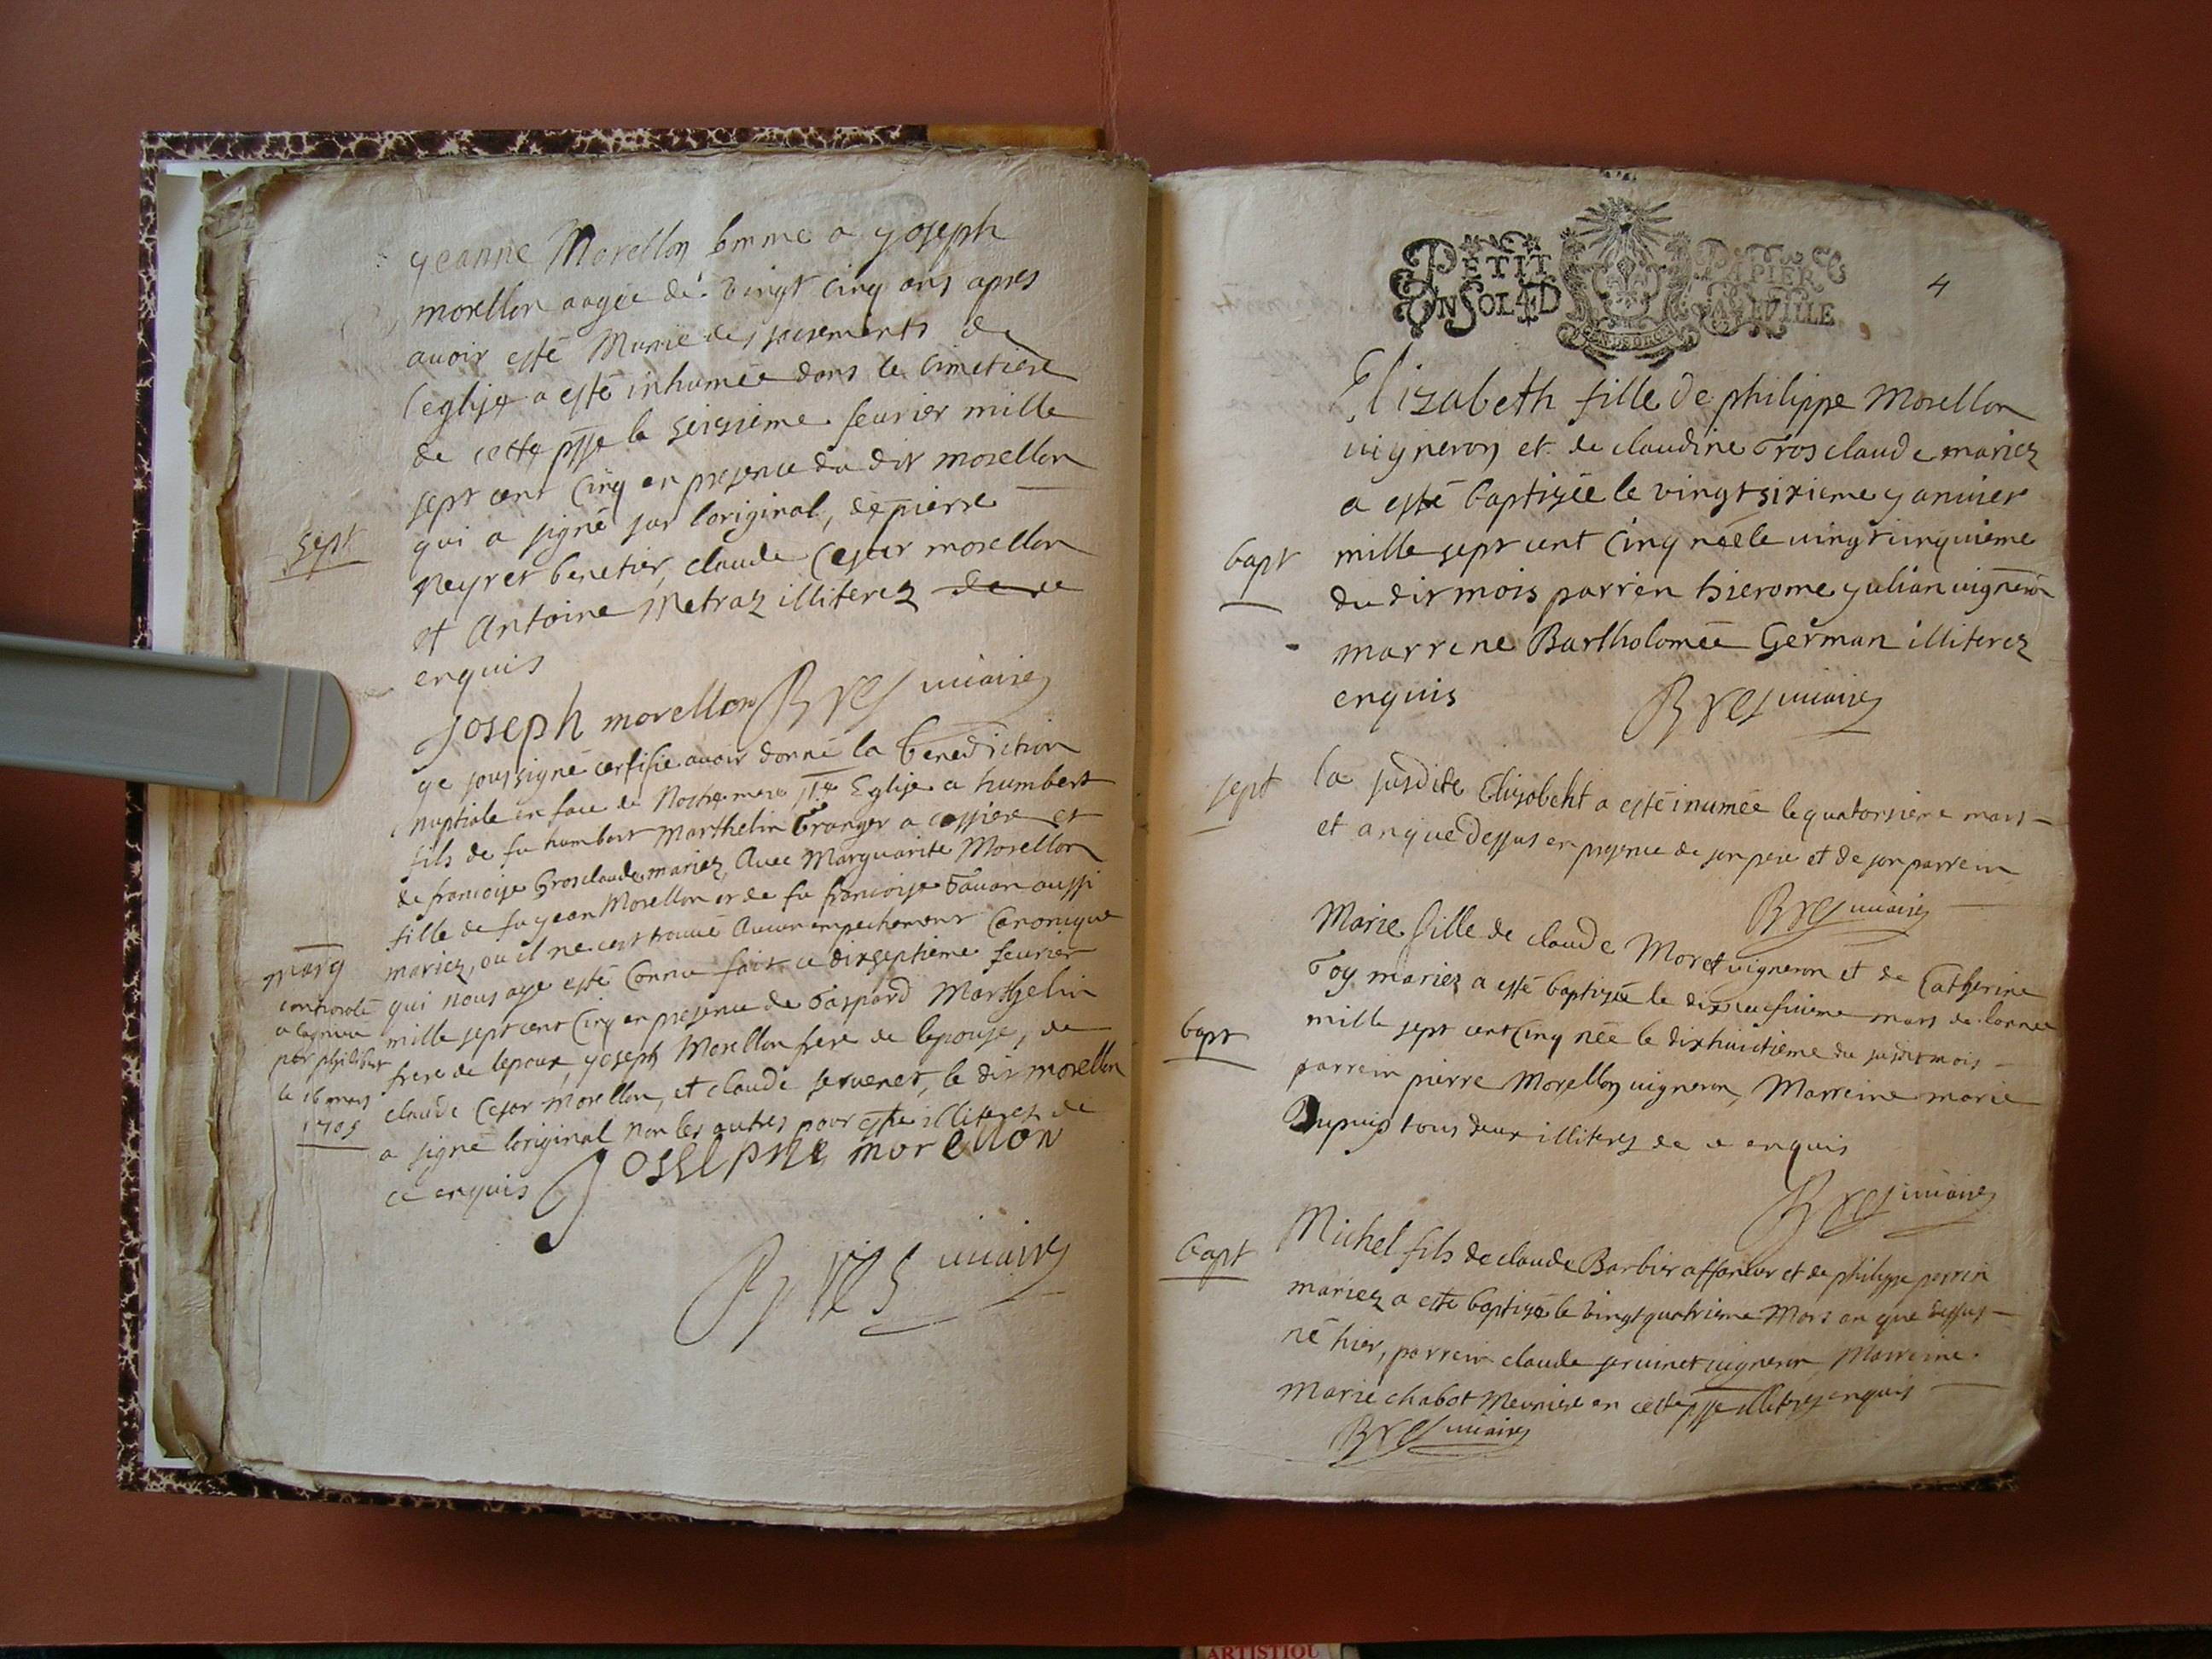 yeanne Morellon femme a yoseph
morellon aagée de vingt cinq ans apres
avoir esté Munie des sacrements de
leglise a esté inhumée dans le cimetiere
de cette psse le seisieme feurier mille
sept cent cinq en presence du dit morellon
qui a signé sur loriginal, de pierre
sept
Neyret benetier, claude Cesar morellon
et Antoine Metraz illiterez de ce
enquis
Joseph morellon Bres vicaire
ye soussigné certifie avoir donné la benediction
nuptiale en face de Nostre mere Ste Eglise a humbert
fils de fu humbert Marthelin Granger a cossiere et
de francoise Grosclaude mariez, Avec Marguarite Morellon
fille de fu yean Morellon et de fu francoise Gavan aussi
mariez, ou il ne cest trouvé Aucun empechement Canonique
qui nous aye esté Connu fait ce dixseptieme feurier
mille sept cent Cinq en presence de Gaspard Marthelin
frere de lepoux, yoseph Morellon frere de lepouse, de
claude Cesar Morellon, et claude servenet, le dit morellon
a signé loriginal non les autres pour estre illiterez de
ce enquis Joselphe morellon
Bres vicaire
marg
controolé
a lagnieu
par philibert
le 16 mars
1705
PETIT PAPIER
UN SOL 4 D LA FEUILLE
4
Elizabeth fille de philippe Morellon
vigneron et de claudine Grosclaude mariez
a esté baptisée le vingtsixieme yanvier
bapt
mille sept cent Cinq née le vingt cinquieme
du dit mois parrein hierome yulian vigneron
marrene Bartholomée German illiterez
enquis Bres vicaire
sept
la susdite Elizabeht a esté inumée le quatorsieme mars
et an que dessus en presence de son pere et de son parrein
Bres vicaire
Marie fille de claude Moret vigneron et de Catherine
Goy mariez a esté baptisée le dixneufuieme mars de lannee
bapt
mille sept cent Cinq née le dixhuictieme du susdit mois
parrein pierre Morellon vigneron, Marreine marie
Dupuis tous deux illiterez de ce enquis
Bres vicaire
bapt
Michel fils de claude Barbier affaneur et de philippe perrin
mariez a esté baptisé le vingtquatrieme Mars an que dessus
né hier, parrein claude servinet vigneron Marreine
Marie chabot Meuniere en cette psse illiterez enquis
Bres vicaire
ARTISTIQU